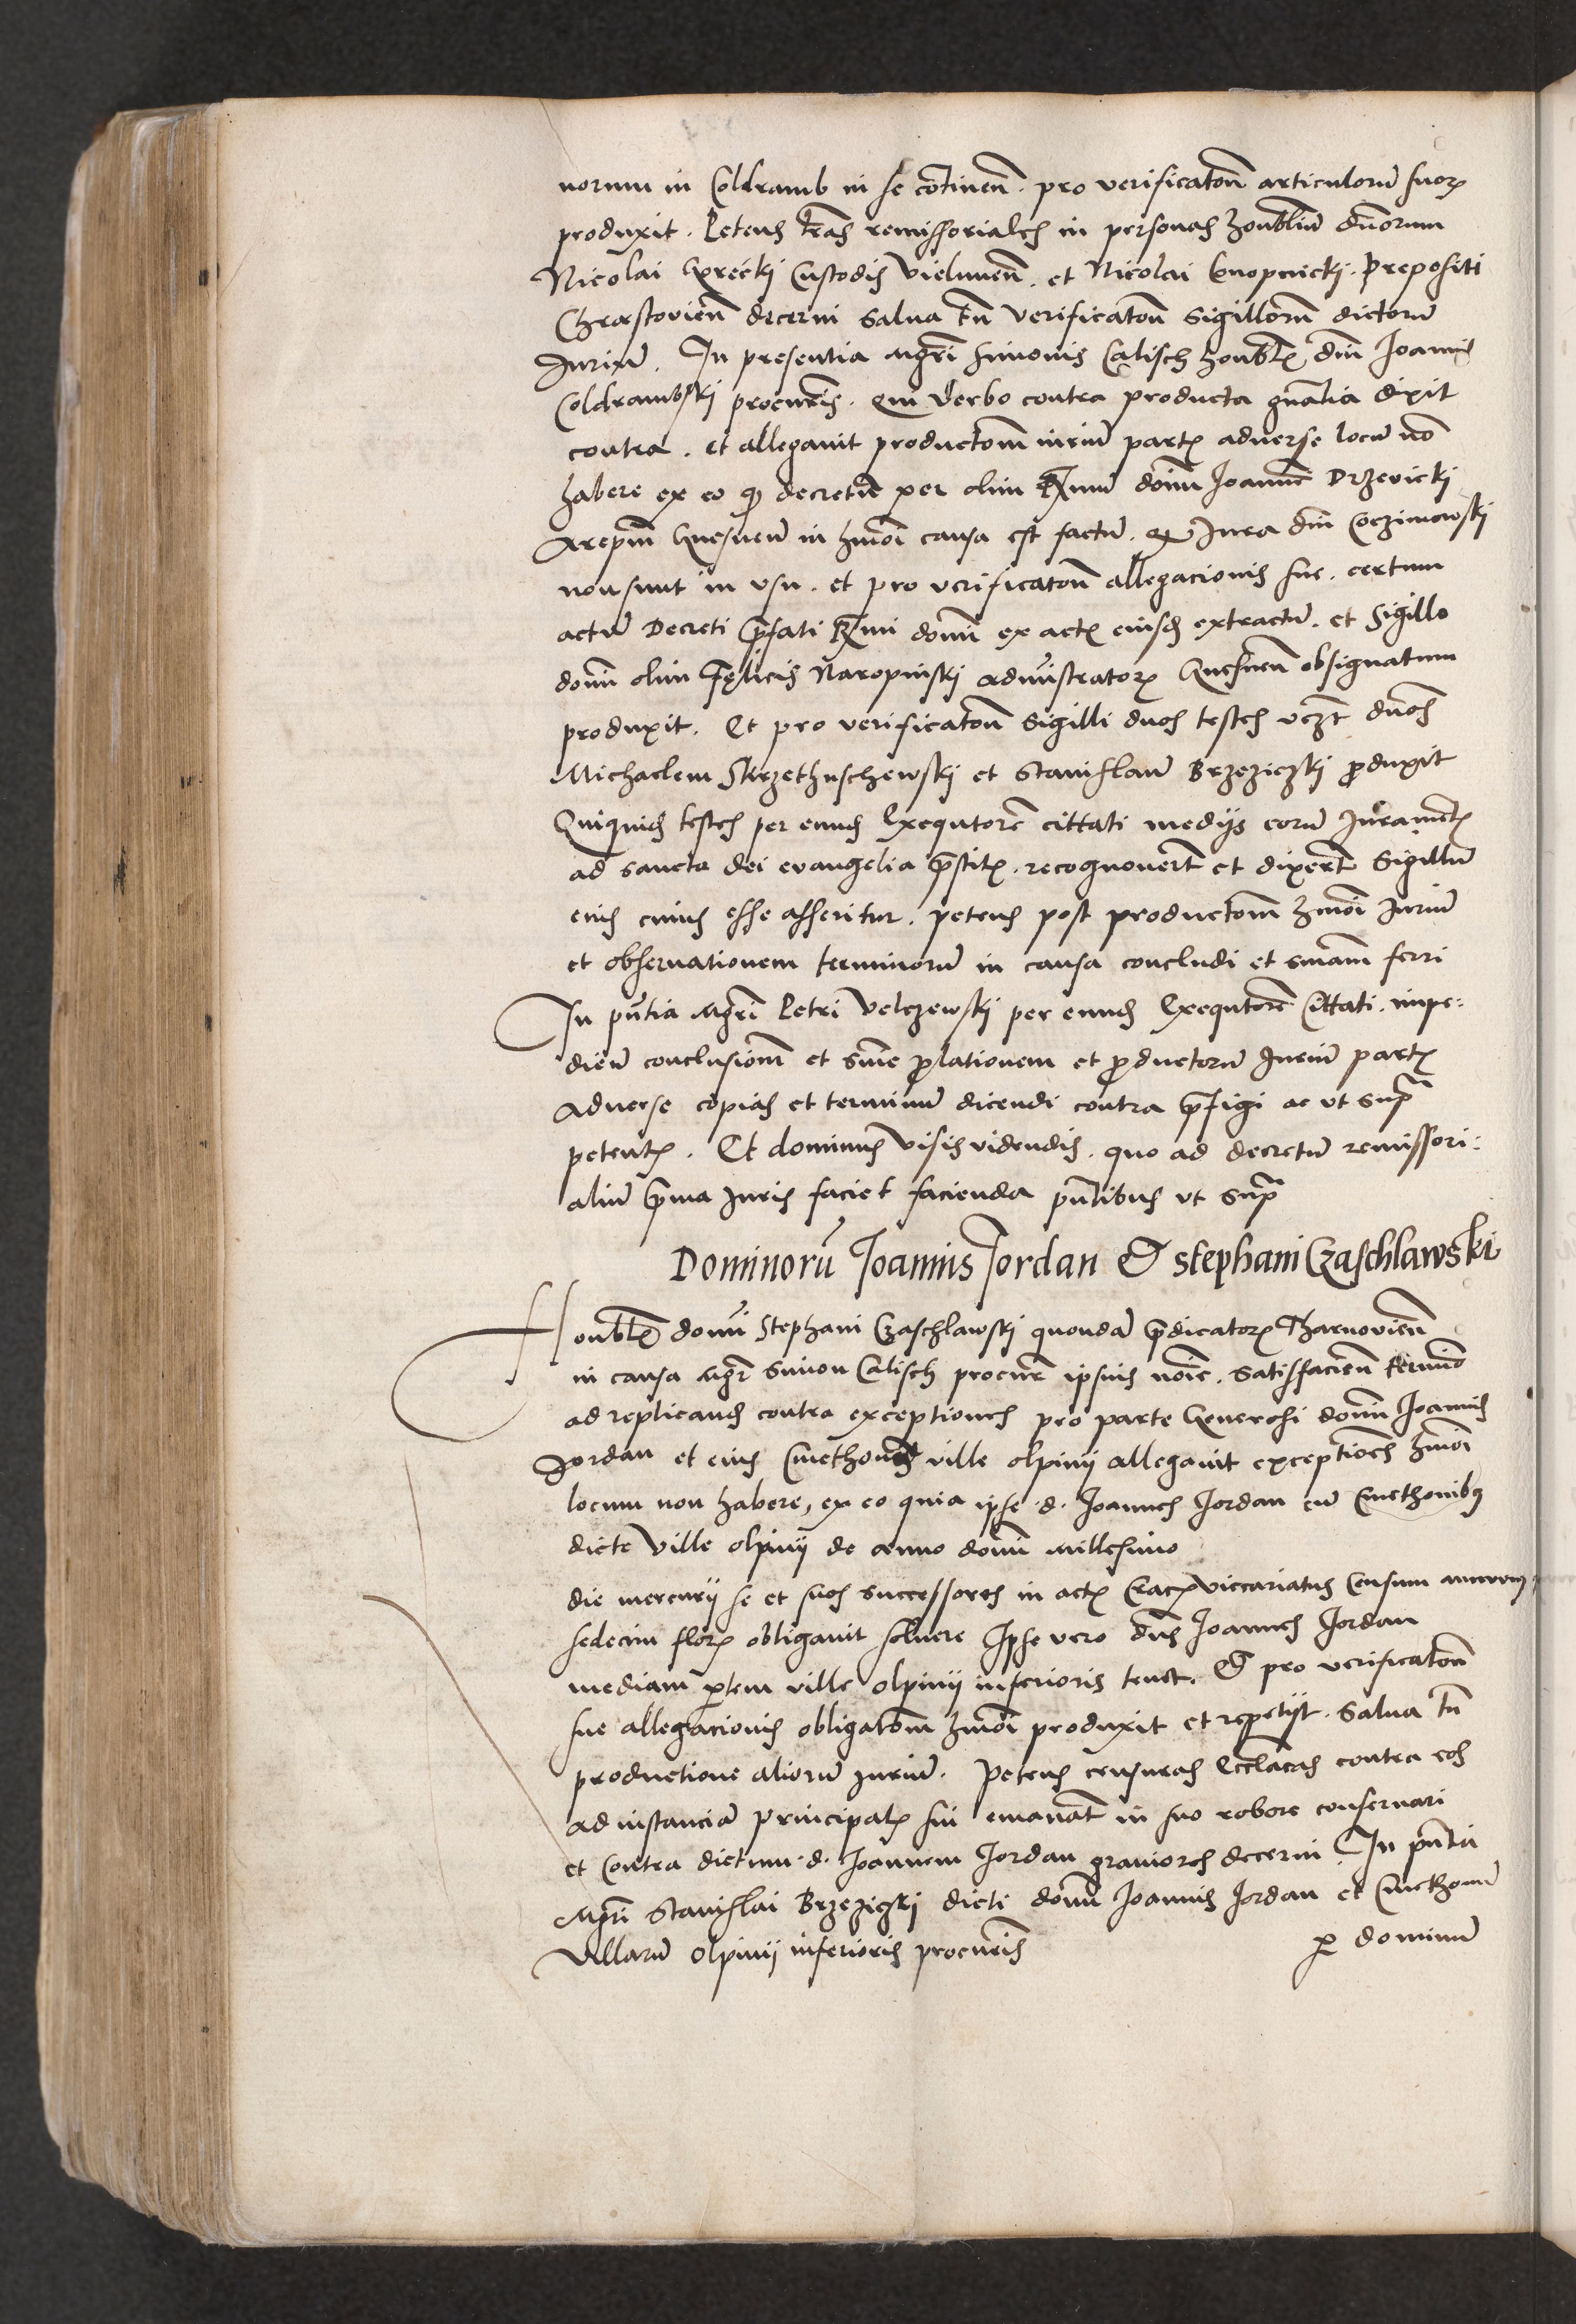 norum in Coldramb in se continen̄. pro verificatōn articulorū suorꝫ
produxit. Petens lrās remissoriales in personas honbliū dnōrum
Nicolai Grecki Custodis Vielunen̄. et Nicolai Knopnicki. Prepositi
Chrastovien̄ decerni salva tn̄ verificatōn sigillorū dictorū
Jurium. In presentia Mgrī Simonis Calisch honbl̄ dnī Joannis
Coldrambski procurr̄is. qui verbo contra producta gnālia dixit
contra. et allegavit productōm iurium partꝫ adverse locū nō
habere ex eo ꝙ decretū per olim Rx̄mum domī Joannē Drzevicki
Arepīm Gnesnen̄ in hmōi causa est factū. ꝙ Jura dnī Coczinowski
non sunt in usu. et pro verificatōn allegacionis sue. certum
actum Decreti pr̄fati Rx̄mi domī ex actꝫ eiusd extractū. et Sigillo
domī olim Felicis Naropinski administratorꝫ Gnesnen̄ obsignatum
produxit. Et pro verificatōn Sigilli duos testes vczt dnōs
Michaelem Skrzethuschewski et Stanislaū Brzeziczki produxit
Quiquid testes per eund Exequtorē cittati medijs eorū Juramentꝫ
ad sancta dei evangelia pr̄stitꝫ. recognovert̄ et dixert̄ Sigillū
eius cuius esse asseritur. petens post productōm hmōi Jurium
et observationem terminorū in causa concludi et snīam ferri
In pn̄tia Mgrī Petri Velczewski per eund Exequtorē Cittati. impe:
dien̄ conclusionē et snīe prolationem et productorū Jurium partꝫ
adverse copias et terminū dicendi contra pr̄figi ac ut supr̄
petentꝫ. Et dominus visis videndis. quo ad decretū remissori:
aliū prima Juris faciet facienda pn̄tibus ut Supr̄
Dominorū Joannis Jordan & stephani Czaschlawski
Honblꝫ domī Stephani Czaschlawski quondā pr̄dicatorꝫ Tharnovien̄
in causa Mgr̄ Simon Calisch procurr̄ ipsius noīe. satisfacien̄ termino
ad replicand contra exceptiones pro parte Generosi domī Joannis
Jordan et eius Cmethonū ville olpinij allegavit exceptiones hmōi
locum non habere, ex eo quia ipse .d. Joannes Jordan cū Cmethonibꝫ
dicte Ville olpinij de anno domī millesimo
die mercurij se et suos successores in actꝫ Crac̄ viccariatus Censum annuum
sedecim florꝫ obligavit solvere Ipse vero dn̄s Joannes Jordan
mediam ꝑtem ville olpinij inferioris tenet. Et pro verificatōn
sue allegacionis obligatōm hmōi produxit et repetijt. Salva tn̄
productione aliorū Jurium. Petens censuras Ecclācas contra eos
ad instanciā principalꝫ sui emanat̄ in suo robore conservari
et contra dictum .d. Joannem Jordan graviores decerni. In pn̄tia
Mgrī Stanislai Brzeziczki dicti domī Joannis Jordan et Cmethonū
Villarū Olpinij inferioris procurr̄is
ꝑ dominū